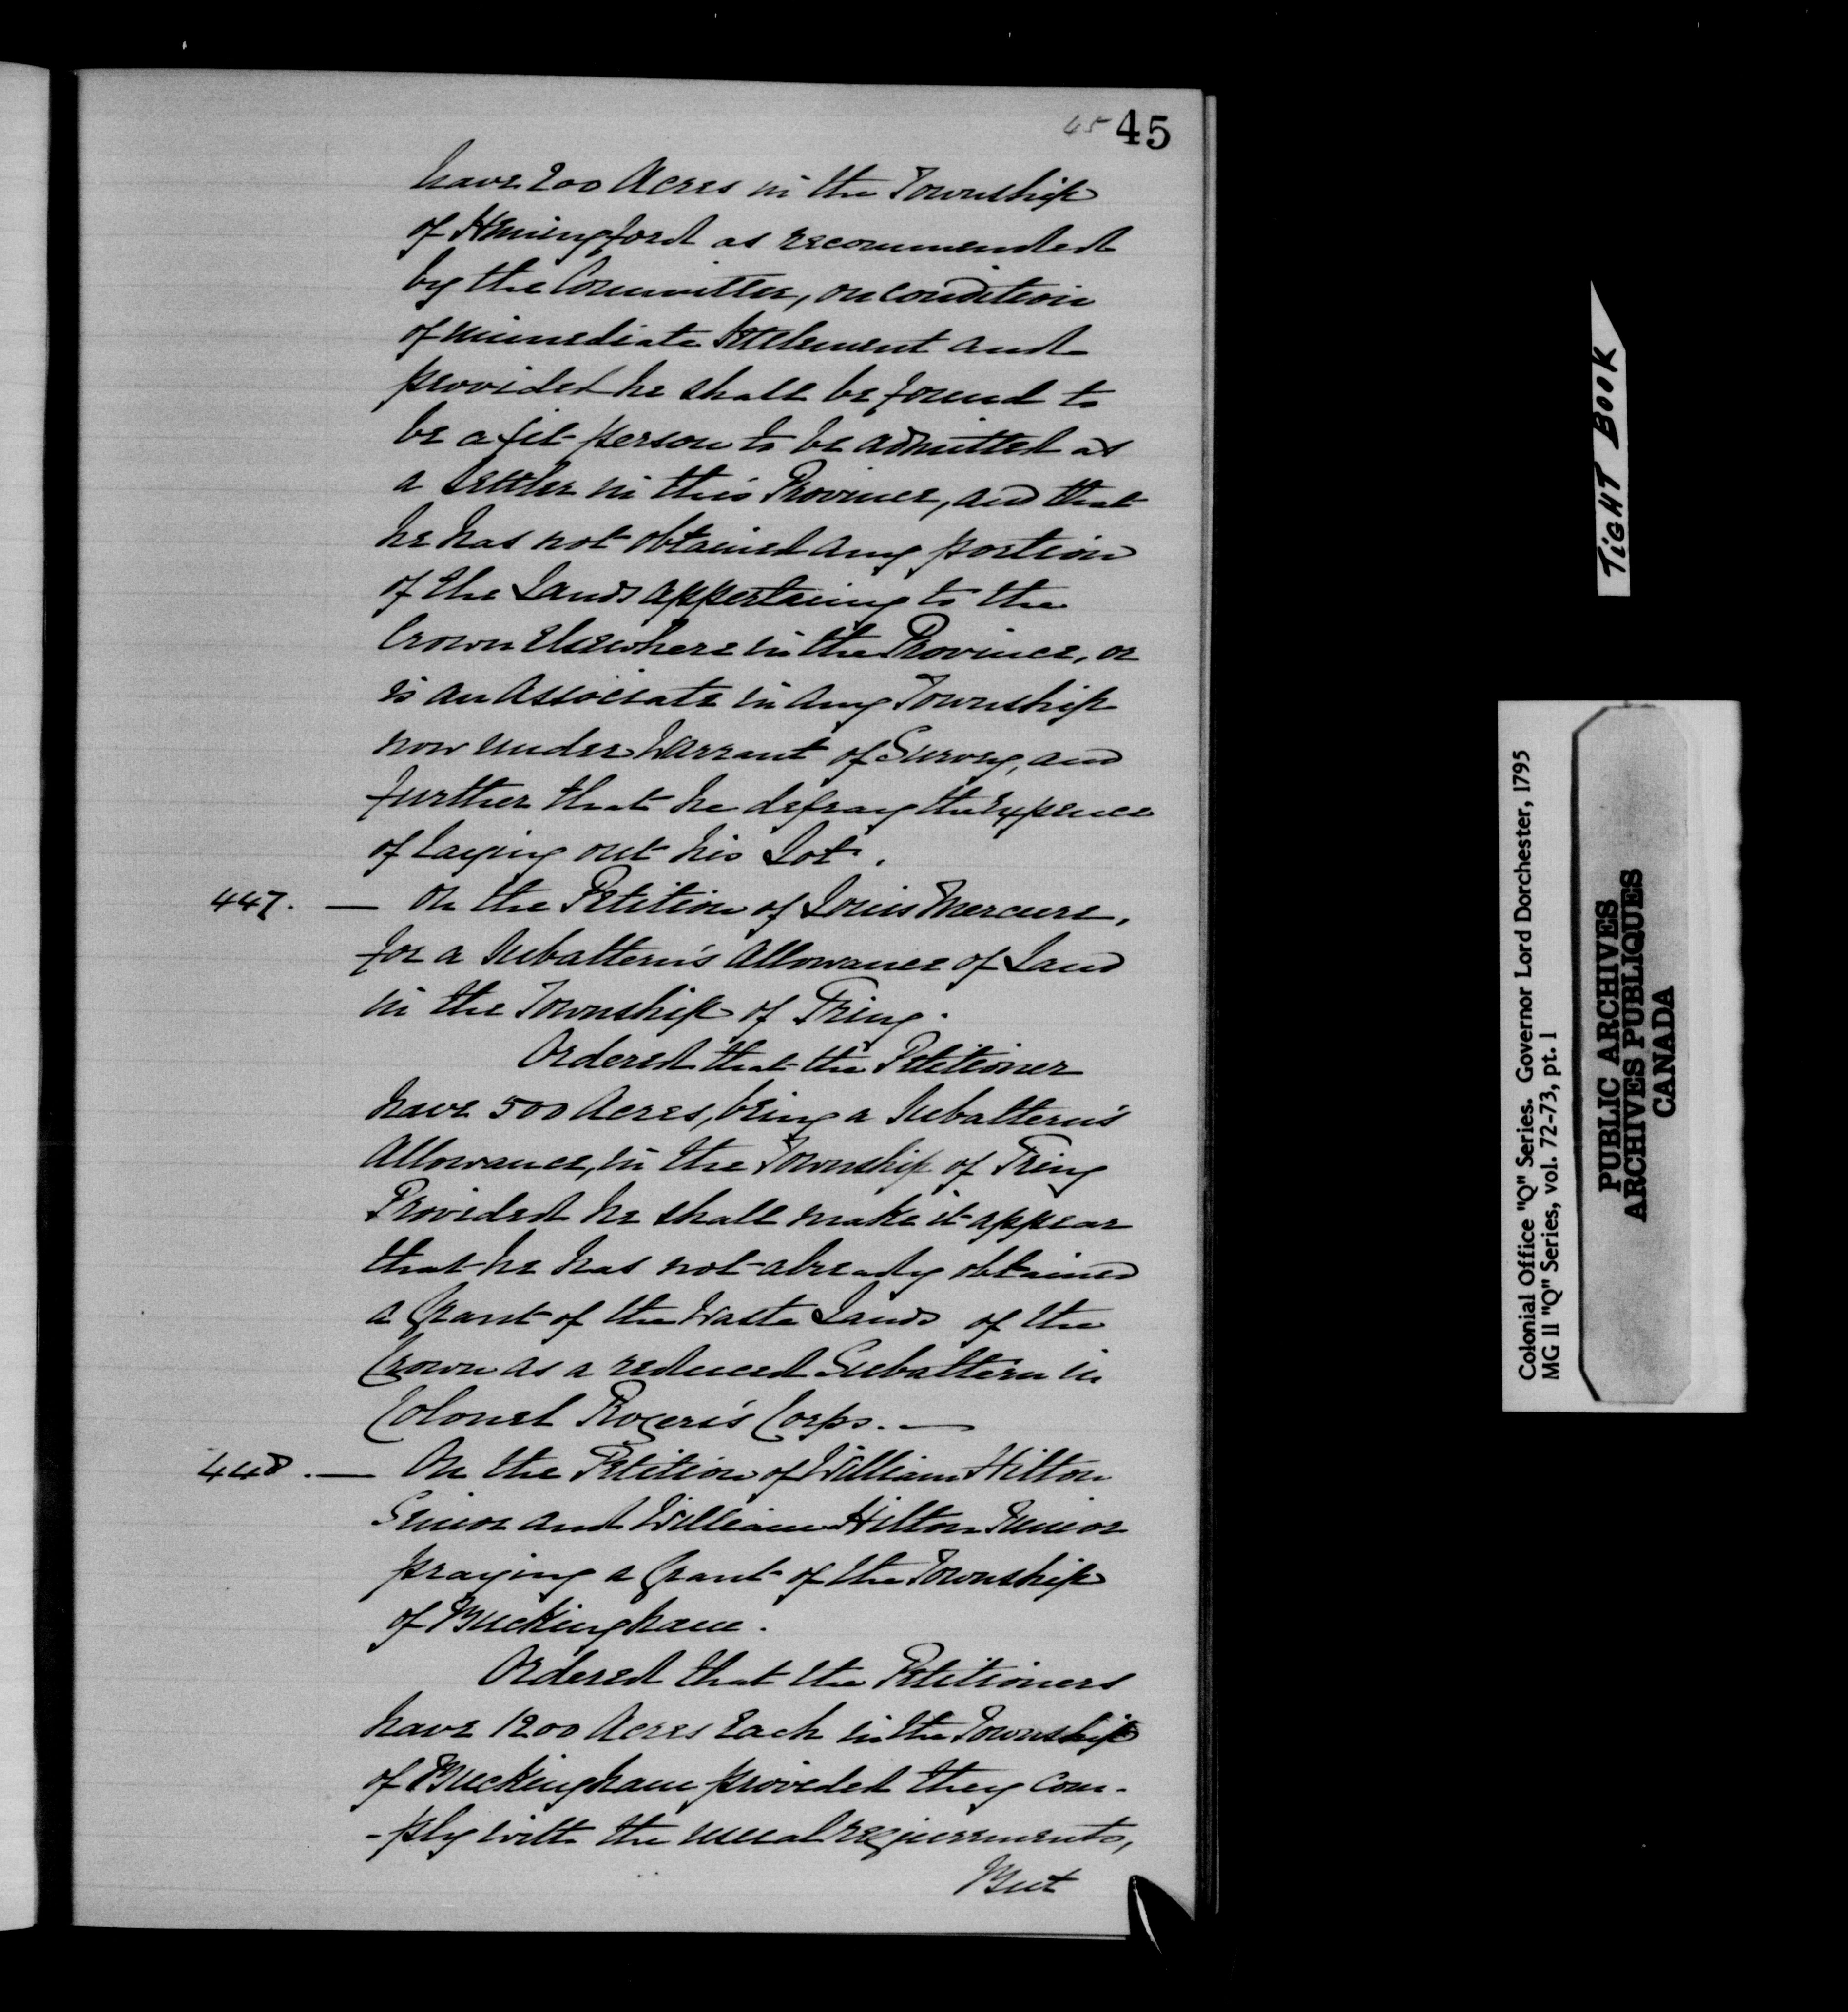 45 45
have 200 Acres in the Township
of Hemingford as recommended
by the Committee, on condition
of immediate Settlement and
provided he shall be found to
be a fit person to be admitted as
a Settler in this Province, and that
he has not obtained any portion
of the Lands appertaining to the
Crown elsewhere in the Province, or
is an Associate in any Township
now under Warrant of Survey, and
further that he defray the expence
of laying out his Lot.
447. — On the Petition of Louis Mercure,
for a Subaltern's Allowance of Land
in the Township of Tring.
Ordered that the Petitioner
have 500 Acres, being a Subaltern's
Allowance, in the Township of Tring
Provided he shall make it appear
that he has not already obtained
a Grant of the Waste Lands of the
Crown as a reduced Subaltern in
Colonel Rogers's Corps. —
448. — On the Petition of William Hilton
Senior and William Hilton Junior
praying a Grant of the Township
of Buckingham.
Ordered that the Petitioners
have 1200 Acres each in the Township
of Buckingham provided they com-
-ply with the usual requirements,
But
TIGHT BOOK
Colonial Office "Q" Series. Governor Lord Dorchester, 1795
MG 11 "Q" Series, vol. 72-73, pt. 1
PUBLIC ARCHIVES
ARCHIVES PUBLIQUES
CANADA